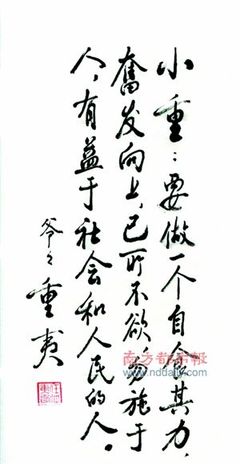 小重：要做一个自食其力、
奮发向上、己所不欲，勿施于
人、有益于社会和人民的人。
爷々重夷
南方都市報